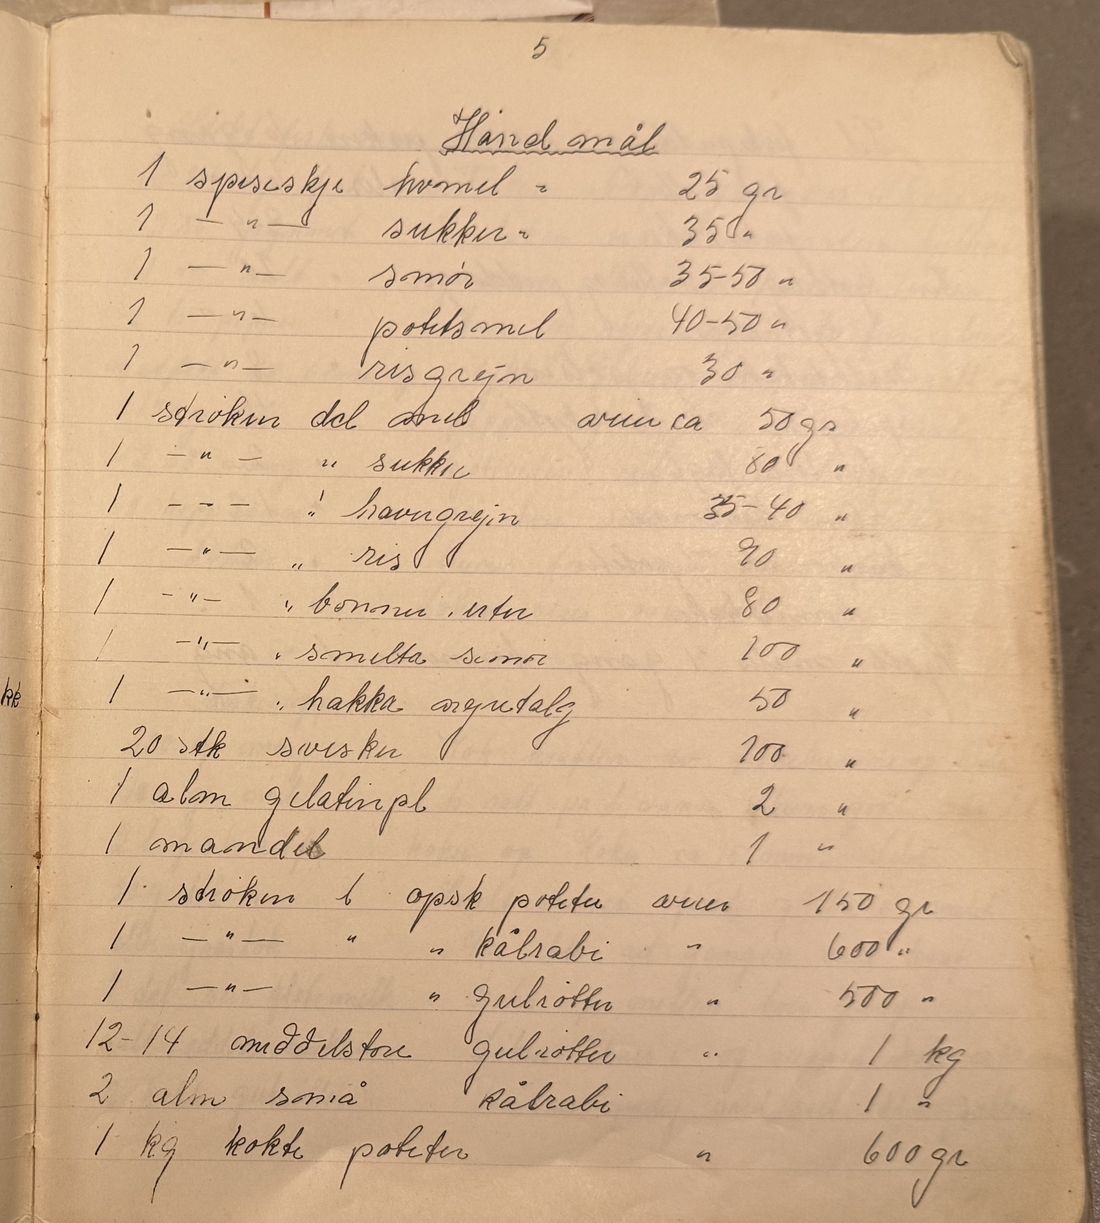 5
Hånd mål
1 spiseskje hvmel " 25 gr
1 —"— sukker " 35 "
1 —"— smør 35-50 "
1 —"— potetsmel 40-50 "
1 —"— risgrejn 30 "
1 strøken del mel veier ca 50 gr
1 —"— " sukker 80 "
1 --- " havregrejn 35-40 "
1 —"— " ris 90 "
1 -"- " bønner . erter 80 "
1 —"— " smelta smør 100 "
1 —"— " hakka nyretalg 50 "
20 stk svisker 100 "
1 alm gelatinpl 2 "
1 mandel 1 "
1 strøken l opsk poteter veier 150 gr
1 —"— " " kålrabi " 600 "
1 —"— " gulrøtter " 500 "
12-14 middelstore gulrøtter " 1 kg
kk
2 alm små kålrabi 1 "
1 kg kokte poteter " 600 gr